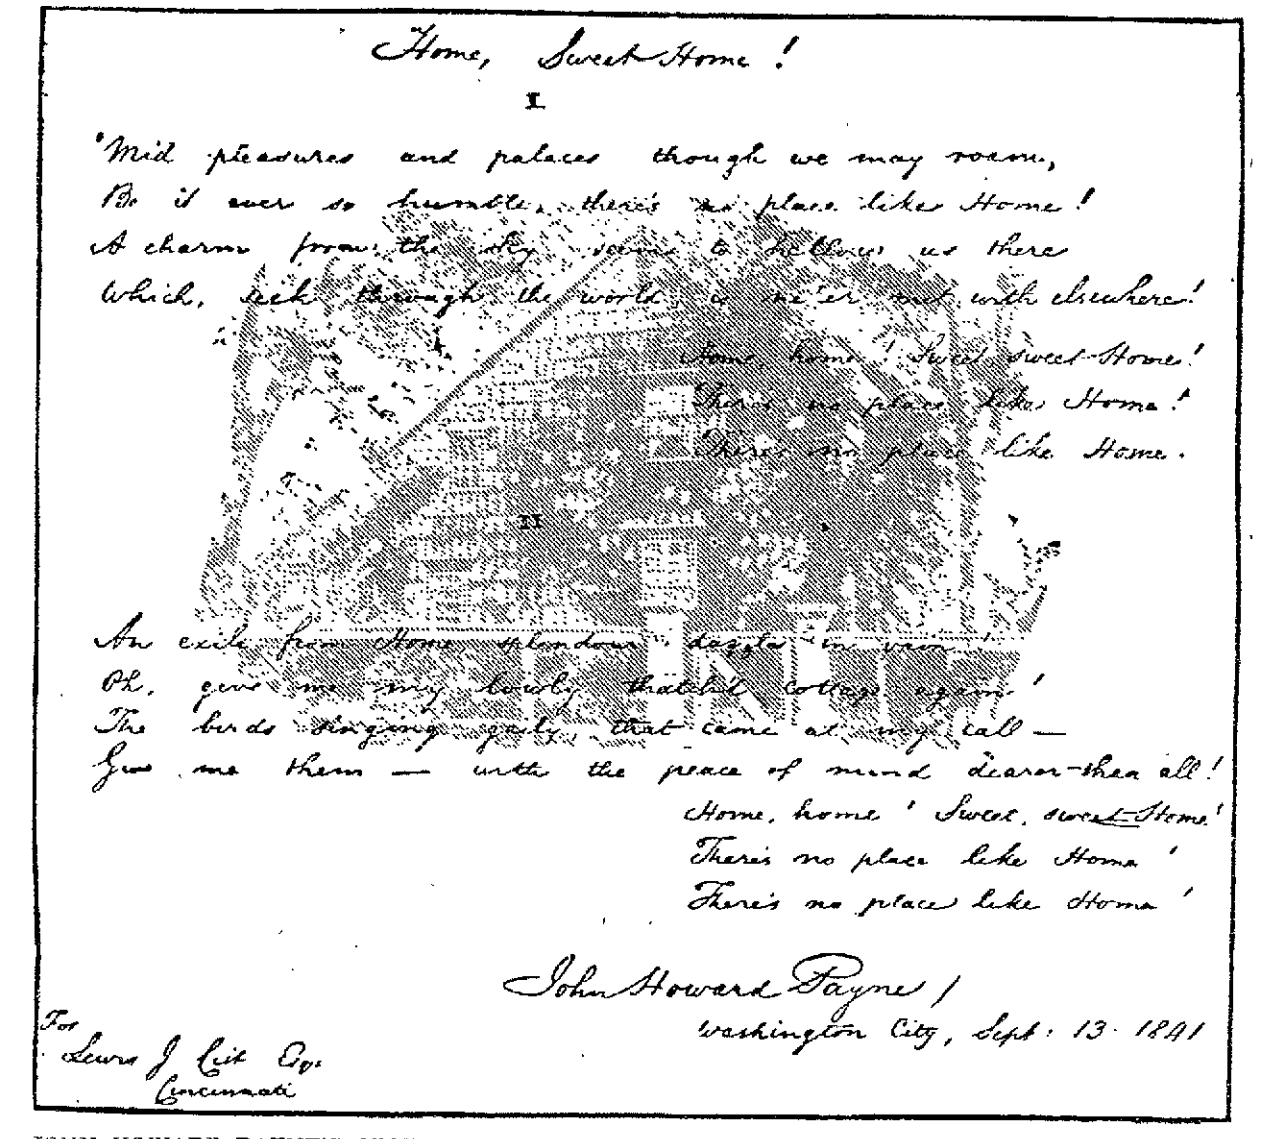 Home, Sweet Home!
I.
'Mid pleasures and palaces though we may roam,
Be it ever so humble, there's no place like Home!
A charm from the sky seems to hallow us there
Which, seek through the world, is ne'er met with elsewhere!
Home, home! Sweet, sweet Home!
There's no place like Home!
There's no place like Home.
II
An exile from Home splendour dazzles in vain!
Oh, give me my lowly thatch'd cottage again!
The birds singing gaily that came at my call —
Give me them — with the peace of mind dearer than all!
Home, home! Sweet, sweet Home!
There's no place like Home!
There's no place like Home!
John Howard Payne
Washington City, Sept: 13. 1841
For
Lewis J Cist Esq.
Cincinnati